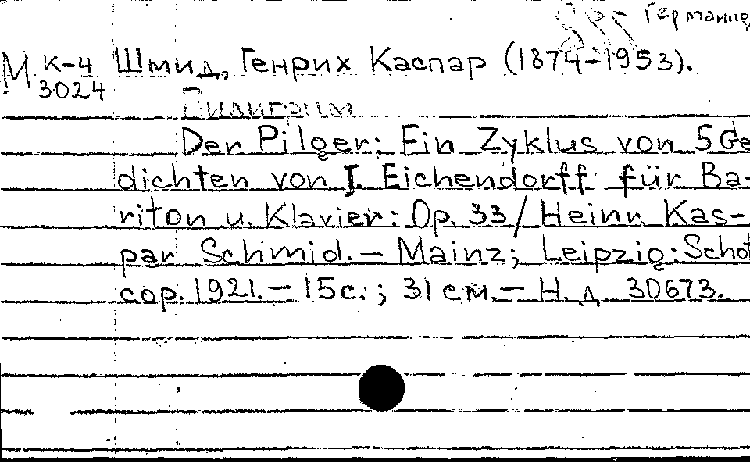 Германия
М К-4 Шмид, Генрих Каспар (1874-1953).
3024
Пилигрим
Der Pilger: Ein Zyklus von 5 Ge
dichten von J. Eichendorff für Ba-
riton u. Klavier: Op. 33/ Heinr. Kas-
par Schmid. – Mainz; Leipzig: Schot
cop. 1921. – 15с.; 31 см. – Н. д. 30673.